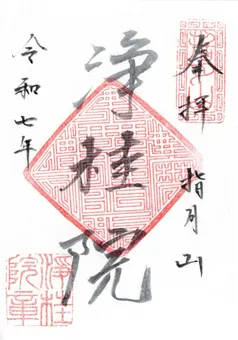 奉拝
指月山
浄桂院
令和七年
浄桂
院章